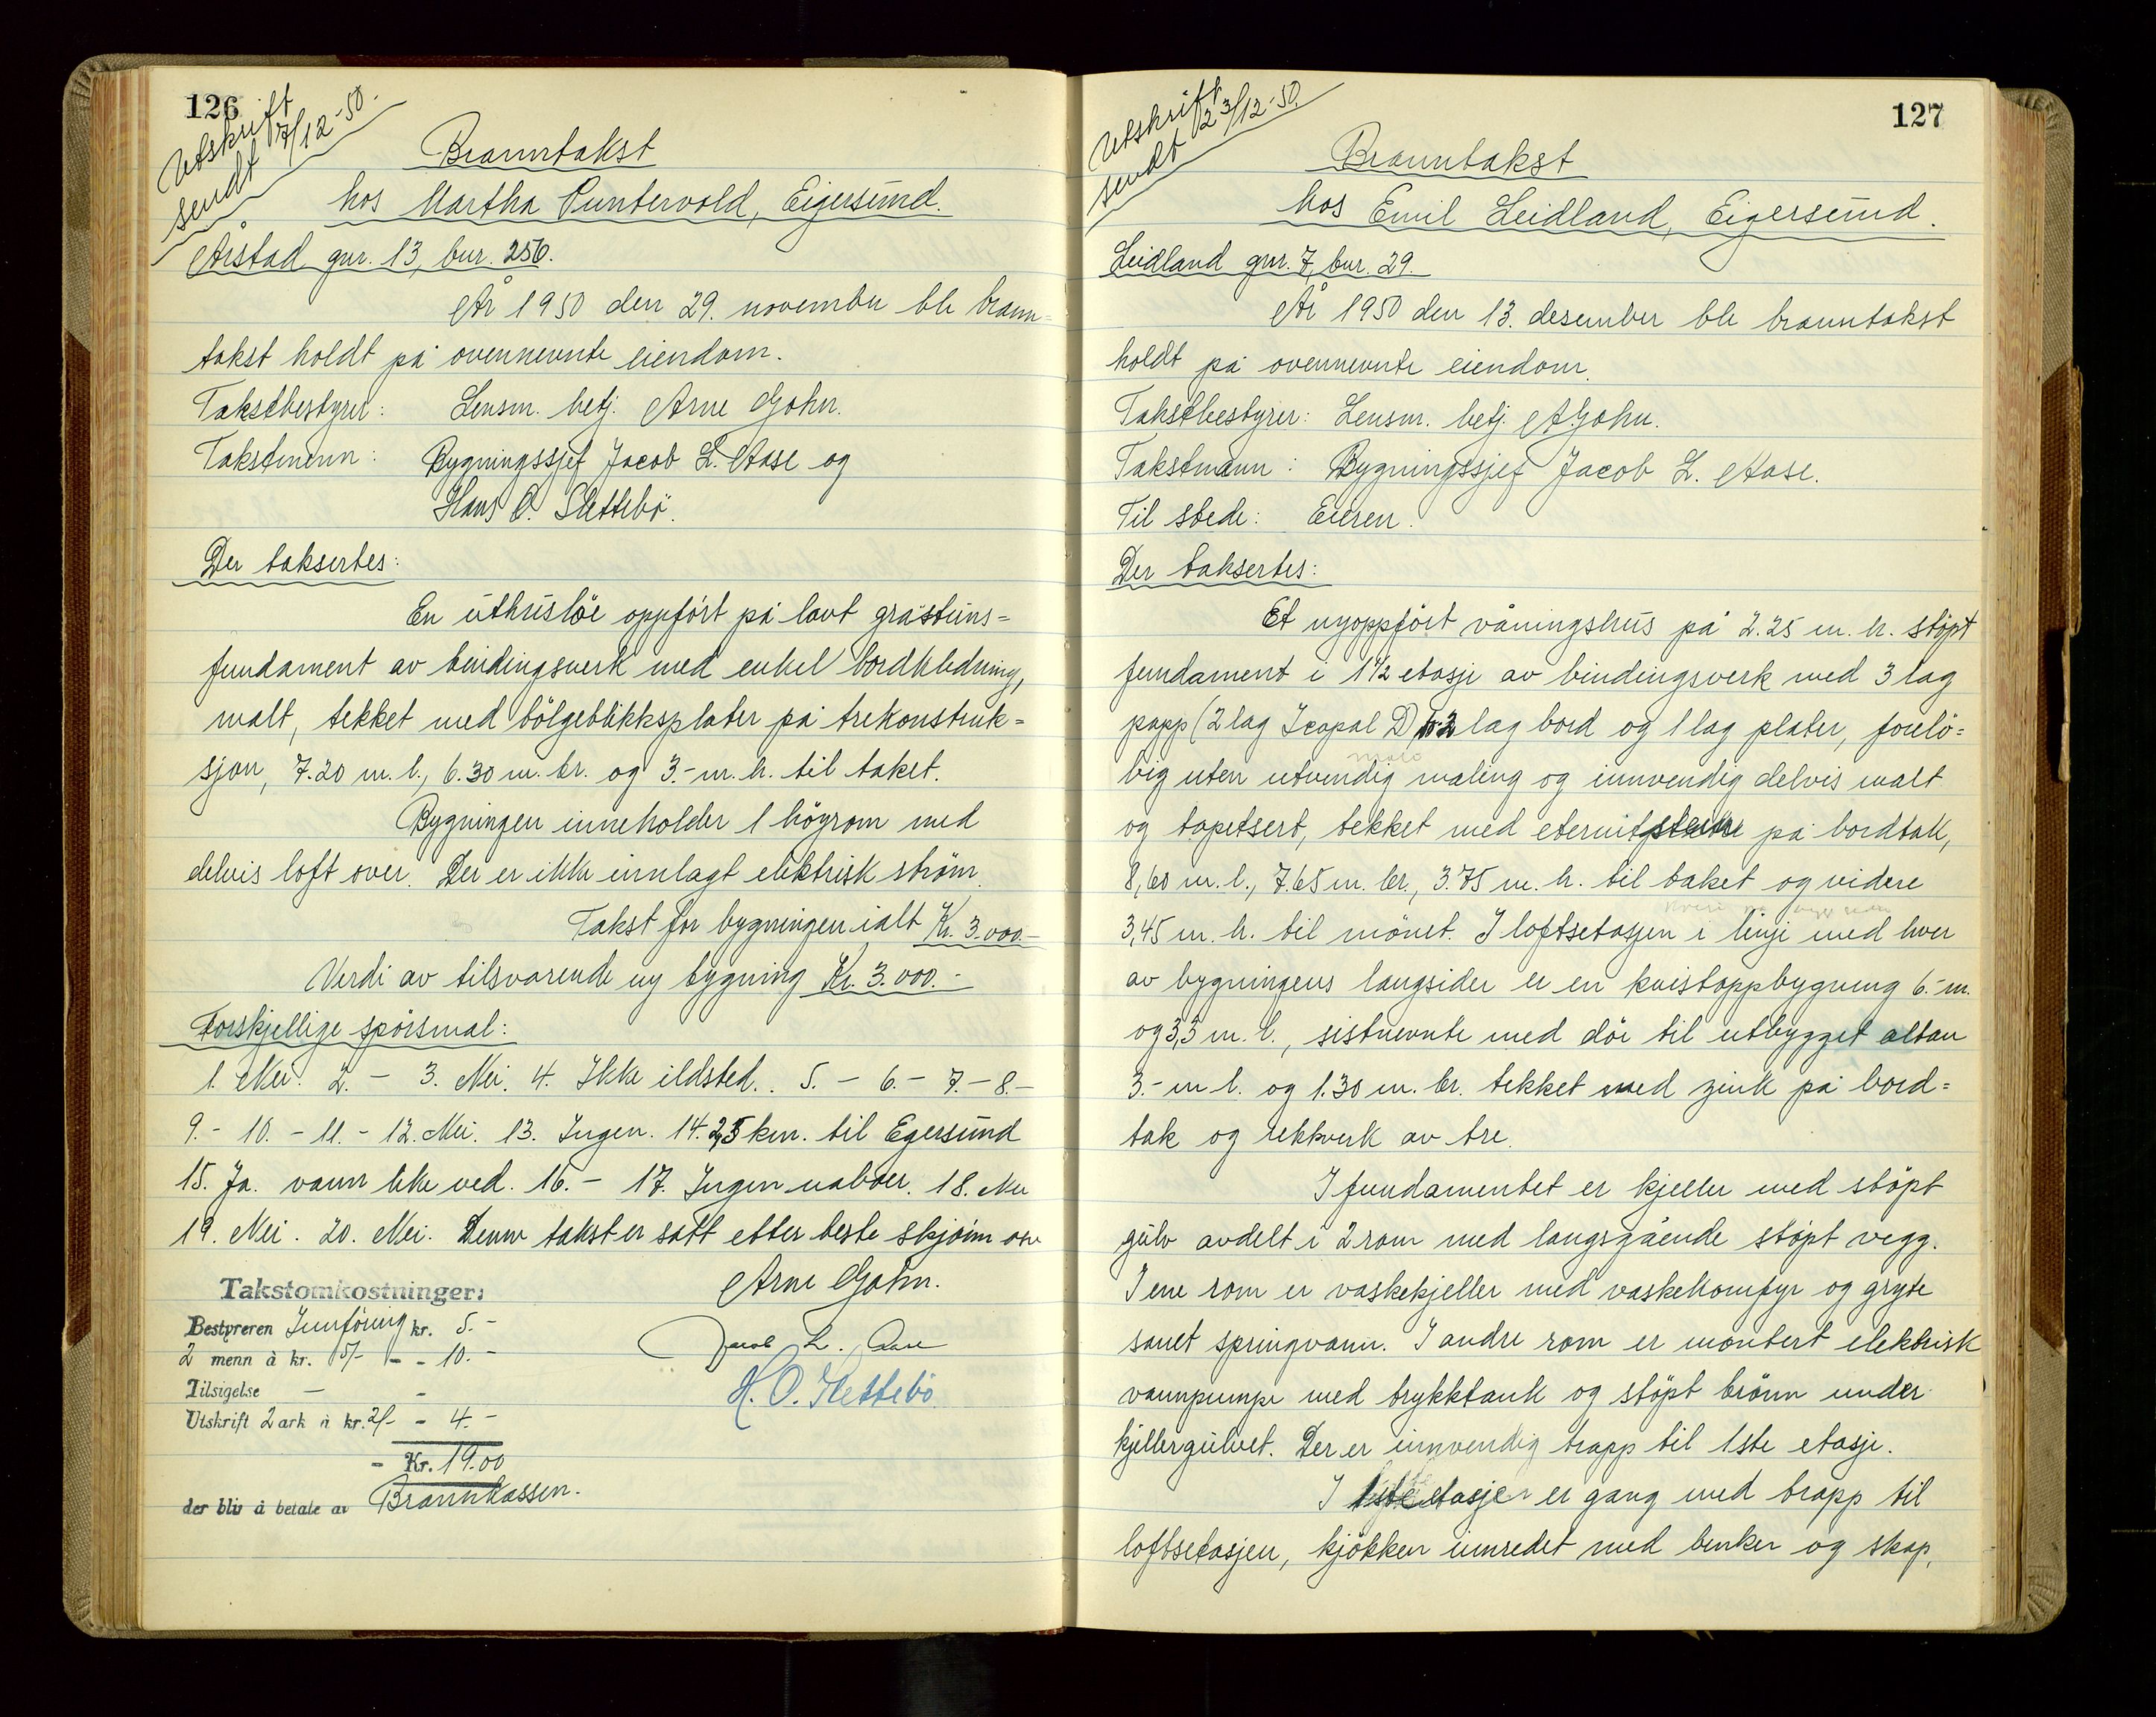 126
Utskrift
sendt 17/12-50.
Branntakst
hos Martha Puntervold, Eigersund.
Årstad gnr. 13, bnr. 256.
År 1950 den 29. november ble brann=
takst holdt på ovennevnte eiendom.
Takstbestyrer: Lensm. betj. Arne Gohn.
Takstmenn: Bygningssjef Jacob L. Aase og
Hans O. Slettebö.
Der taksertes:
En uthuslöe oppfört på lavt gråsteins=
fundament av bindingsverk med enkel bordkledning,
malt, tekket med bölgeblikksplater på trekonstruk=
sjon, 7.20 m. l., 6.30 m. br. og 3.- m. h. til taket.
Bygningen inneholder 1 höyrom med
delvis loft over. Der er ikke innlagt elektrisk ström.
Takst for bygningen ialt Kr. 3.000.-
Verdi av tilsvarende ny bygning Kr. 3.000.-
Forskjellige spörsmal:
1. Nei. 2. - 3. Nei. 4. Ikke ildsted. 5. - 6. - 7. - 8. -
9. - 10. - 11. - 12. Nei. 13. Ingen. 14. 2,5 km. til Egersund
15. Ja. vann like ved. 16. - 17. Ingen naboer. 18. Nei
19. Nei. 20. Nei. Denne takst er satt etter beste skjönn osv
Arne Gohn.
Takstomkostninger:
Bestyreren Innföring kr. 5.-
Jacob L. Aase
2 menn à kr. 5/- - - 10.-
H. O. Slettebö
Tilsigelse - -
Utskrift 2 ark à kr. 2/- - 4.-
- Kr. 19.00
der bliv å betale av Brannkassen.
127
Utskrift
sendt 23/12-50.
Branntakst
hos Emil Leidland, Eigersund.
Leidland gnr. 7, bnr. 29.
År 1950 den 13. desember ble branntakst
holdt på ovennevnte eiendom.
Takstbestyrer: Lensm. betj. A Gohn.
Takstmann: Bygningssjef Jacob L. Aase.
Til stede: Eieren.
Der taksertes:
Et nyoppfört våningshus på 2.25 m. h. stöpt
fundament i 1 1/2 etasje av bindingsverk med 3 lag
papp (2 lag Icopal D) 2 lag bord og 1 lag plater, forelö=
big uten utvendig maling og innvendig delvis malt
og tapetsert, tekket med eternitskifer på bordtak,
8,60 m. l., 7.65 m. br., 3.75 m. h. til taket og videre
3,45 m. h. til mönet. I loftsetasjen i linje med hver
av bygningens langsider er en kvistoppbygning 6.- m.
og 3,5 m. l., sistnevnte med dör til utbygget altan
3.- m l. og 1.30 m. br. tekket med zink på bord=
tak og rekkverk av tre.
I fundamentet er kjeller med stöpt
gulv avdelt i 2 rom med langsgående stöpt vegg.
I ene rom er vaskekjeller med vaskekomfyr og gryte
samt springvann. I andre rom er montert elektrisk
vannpumpe med trykktank og stöpt brönn under
kjellergulvet. Der er innvendig trapp til 1ste etasje.
I 1ste etasje er gang med trapp til
loftsetasjen, kjökken innredet med benker og skap,